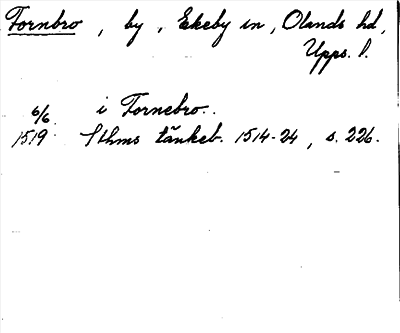 Fornbro , by , Ekeby sn , Olands hd,
Upps. l.
6/6 i Fornebro..
1519 Sthms tänkeb. 1514-24 , s. 226.